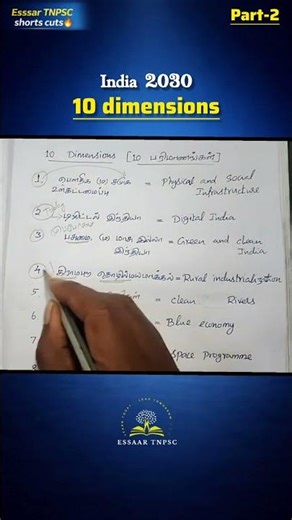 Esssar TNPSC
shorts cuts🔥
Part-2
India 2030
10 dimensions
10 Dimensions [10 பரிமாணங்கள்]
1. பௌதிக (ம) சமூக = Physical and Social
உள்கட்டமைப்பு Infrastructure
2. டிஜிட்டல் இந்தியா = Digital India
3. பசுமை (ம) மாசு இல்லா = Green and clean
இந்தியா India
4. கிராமபுற தொழில்மயமாக்கல் = Rural industrialization
5 = clean Rivers
6 = Blue economy
Space Programme
ESSAAR TNPSC